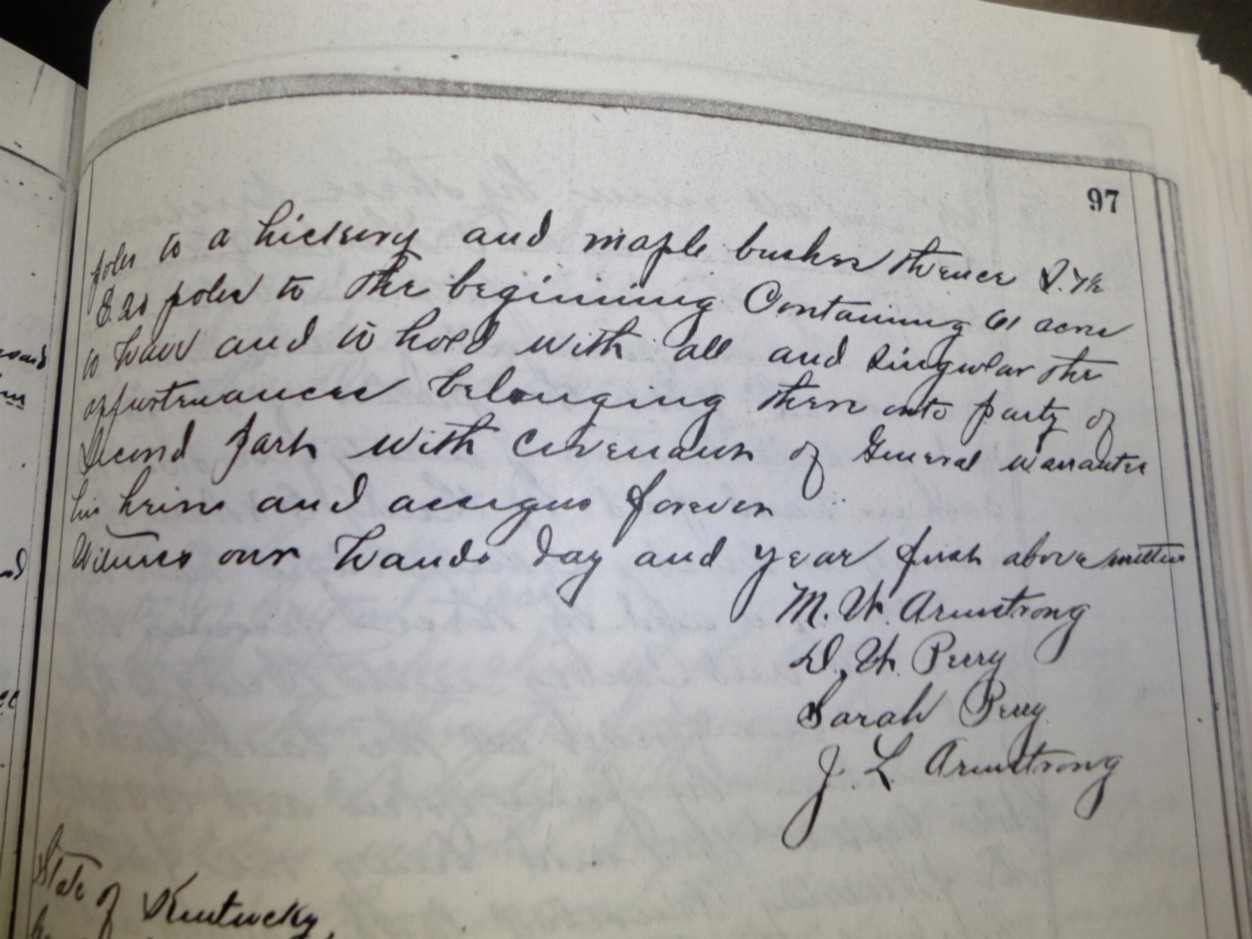 97
poles to a hickory and maple bushes thence S. 7½
E. 20 poles to the beginning Containing 61 acres
to have and to hold with all and singular the
appurtenances belonging there unto party of
Second part with covenant of General warrantee
his heirs and assigns forever
Witness our hands day and year first above written
M. W. Armstrong
D. W. Perry
Sarah Perry
J. L. Armstrong
State of Kentucky,